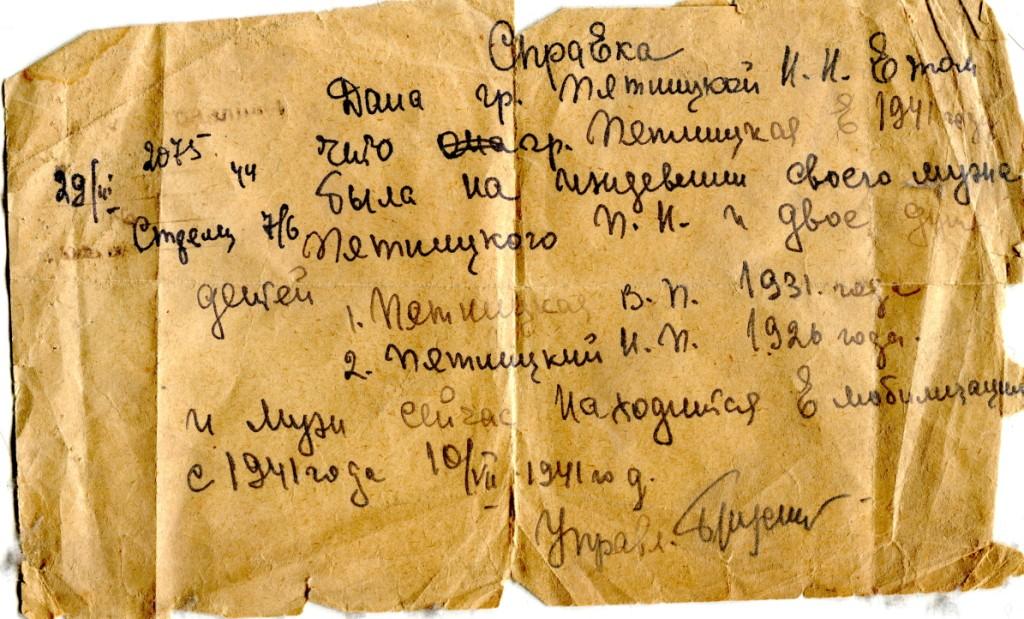 Справка
Дана гр. Пятницкой Н. Н. в том
что она гр. Пятницкая в 1941 года
2075
29/III 44
была на иждевении своего мужа
Стрелец 7/6
Пятницкого П. Н. и двое
детей
1. Пятницкая В. П. 1931. года
2. Пятницкий Н. П. 1926 года.
и муж сейчас находится в мобилизации
с 1941 года 10/VII 1941 год.
Управл.